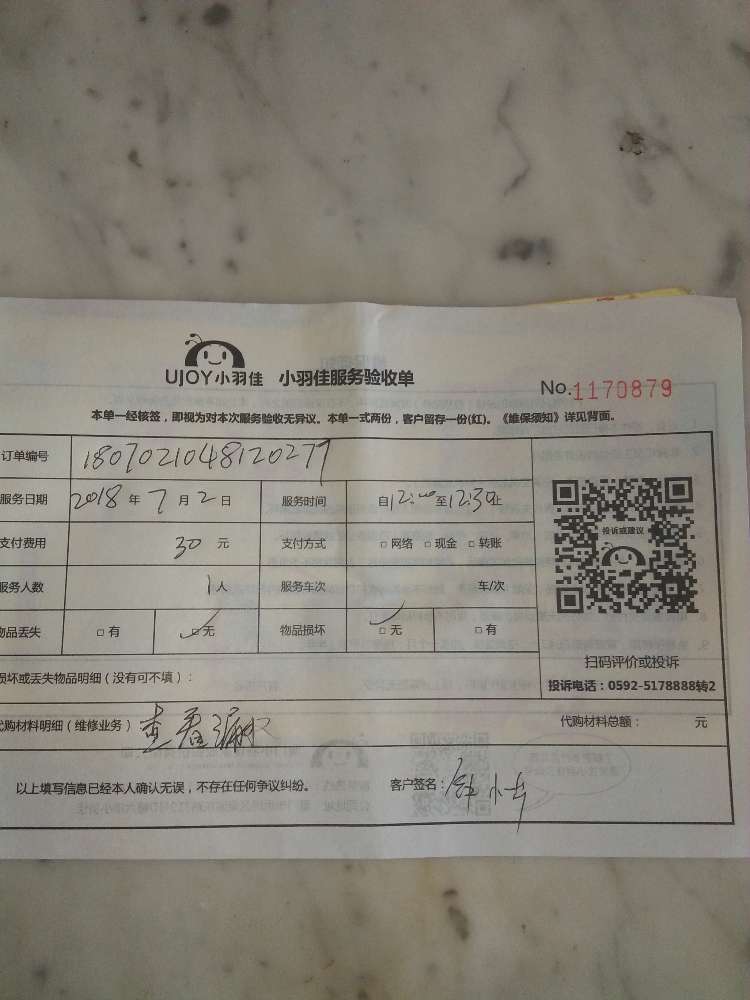 UJOY小羽佳 小羽佳服务验收单
No.1170879
本单一经核签，即视为对本次服务验收无异议。本单一式两份，客户留存一份(红)。《维保须知》详见背面。
订单编号 1807021048120277
服务日期 2018 年 7 月 2 日 服务时间 自12:00至12:30止
支付费用 30 元 支付方式 □ 网络 □ 现金 □ 转账
服务人数 1 人 服务车次 车/次
物品丢失 □ 有 □ 无 物品损坏 □ 无 □ 有
投诉或建议
扫码评价或投诉
投诉电话：0592-5178888转2
损坏或丢失物品明细（没有可不填）：
代购材料明细（维修业务） 查看漏水 代购材料总额： 元
以上填写信息已经本人确认无误，不存在任何争议纠纷。 客户签名：